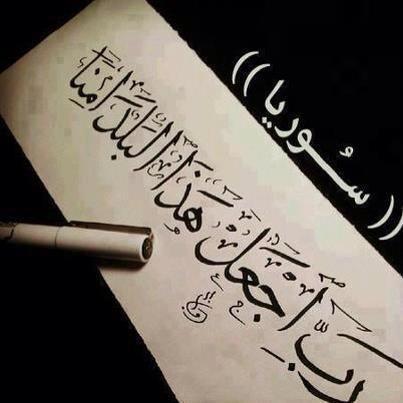 ((سُوريا))
رَبِّ اجْعَلْ هَذَا الْبَلَدَ آمِنًا